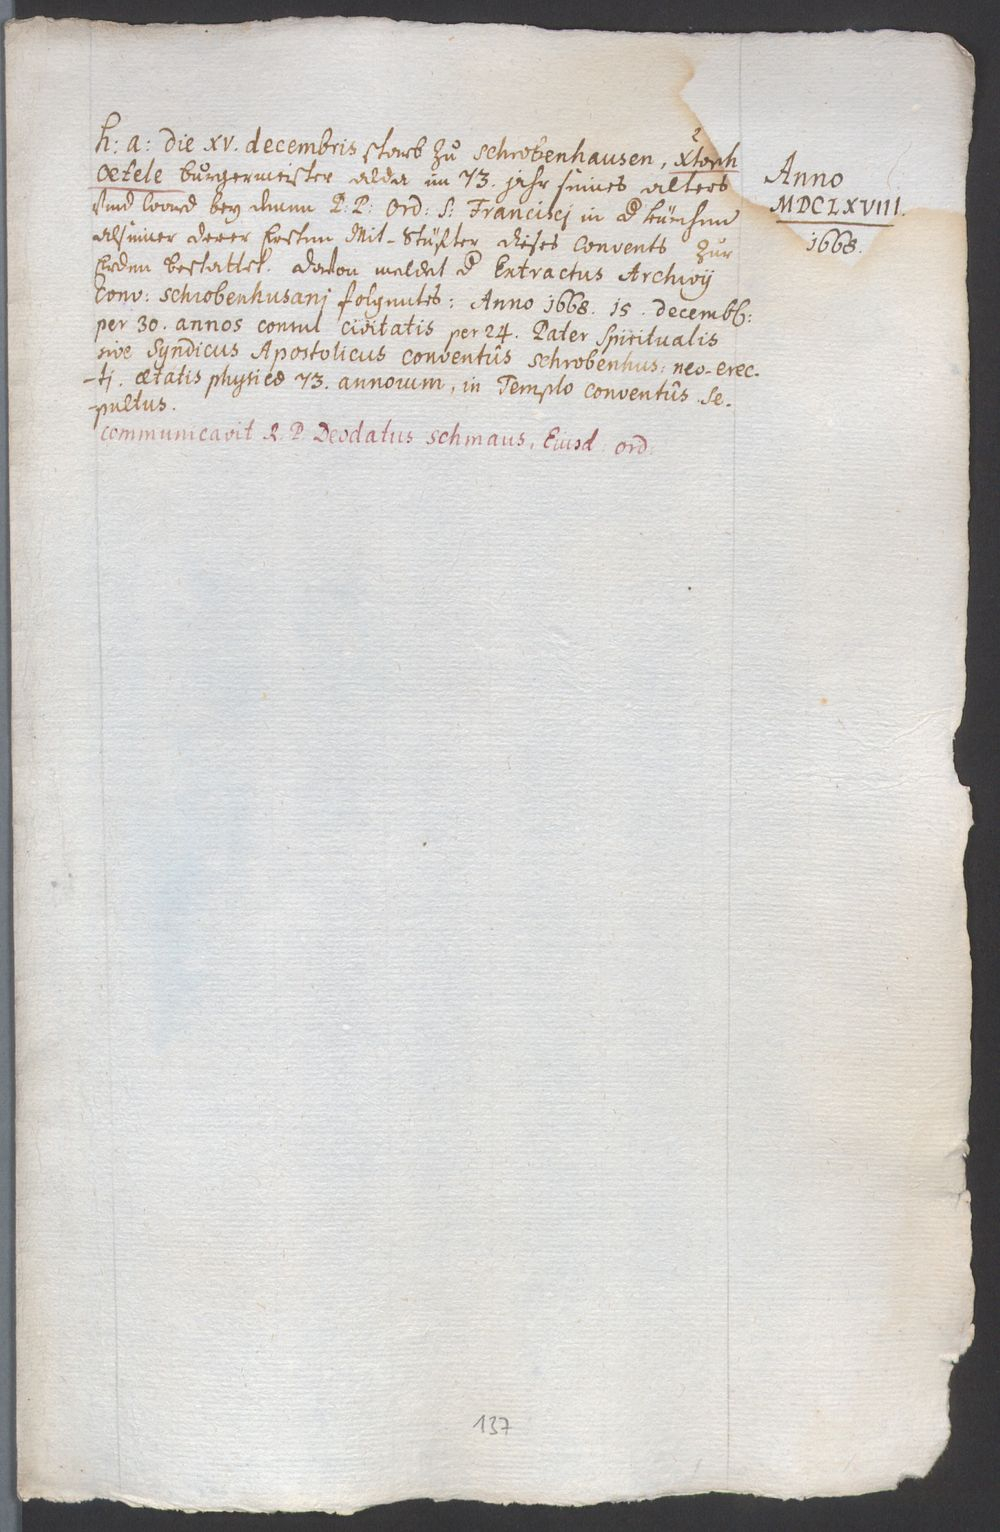 h: a: die XV. decembris starb zu Schrobenhausen, Xtoph
Oefele burgermeister alda im 73. jahr seines alters
Vnd ward bey denen P: P: Ord: S: Francisci in d kürchen
als einer derer Ersten Mit-Stüffter dieses Convents zur
Erden bestattet. davon meldet d Extractus Archivij
Conv: Schrobenhusanj folgentes: Anno 1668. 15. decembb:
per 30. annos consul civitatis per 24. Pater Spiritualis
sive Syndicus Apostolicus conventûs Schrobenhus: neo-erec-
-tj. ætatis physicæ 73. annorum, in Templo conventûs se-
-pultus.
communicavit R. P. Deodatus Schmaus, Eiusd: ord:
Anno
MDCLXVIII.
1668.
137